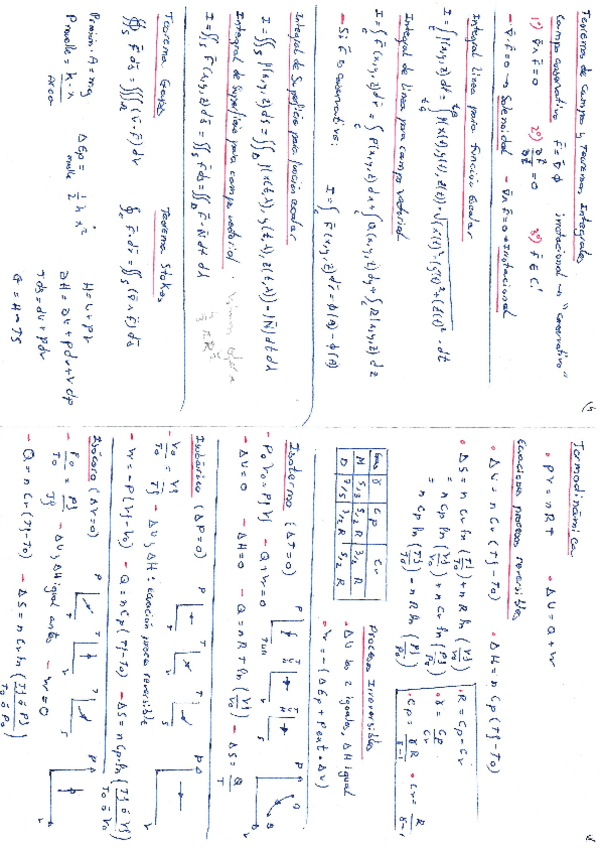 Teoremas de Campo y Teoremas Integrales
Campo conservativo F̄ = ∇̄ϕ irrotacional → "conservativo"
1º) ∇̄∧F̄ = 0 2º) = 0 3º) F̄ ∈ C¹
- ∇̄·F̄ = 0 → Solenoidal - ∇̄∧F̄ = 0 → Irrotacional
Integral línea para función Escalar
Integral de línea para campo vectorial
I = ∫c F̄(x,y,z) dr̄ = ∫c P(x,y,z) dx + ∫c Q(x,y,z) dy + ∫c R(x,y,z) dz
- Si F̄ es conservativo: I = ∫c F̄(x,y,z) dr̄ = ϕ(B) - ϕ(A)
Integral de Superficie para función escalar
I = ∬s f(x,y,z) ds = ∬D f(x(t,λ), y(t,λ), z(t,λ)) · |N̄| dt dλ
Integral de Superficie para campo vectorial
I = ∬s F̄(x,y,z) ds̄ = ∬s F̄ ds̄ = ∬D F̄·N̄ dt dλ
4/3 πR³
Teorema Gauss Teorema Stokes
∯ F̄ ds̄ = ∭ (∇̄·F̄) dv ∮c F̄ dr̄ = ∬s (∇̄∧F̄) ds̄
Pmínimo·A = mg ΔEp muelle = 1/2 k x² H = U + PV
Pmuelle = k·x / área dH = dU + pdv + vdp
Tds = dU + pdv
G = H - TS
Termodinámica
• PV = nRT • ΔU = Q + W
Ecuaciones procesos reversibles
• ΔU = n Cv (Tf - T0) • ΔH = n Cp (Tf - T0)
• ΔS = n Cv ln (Tf/T0) + n R ln (Vf/V0)
= n Cp ln (Vf/V0) + n Cv ln (Pf/P0)
= n Cp ln (Tf/T0) - n R ln (Pf/P0)
• R = Cp - Cv
• γ = Cp/Cv
• Cp = γR/γ-1 • Cv = R/γ-1
Gas γ Cp Cv
M 5/3 5/2 R 3/2 R
D 7/5 7/2 R 5/2 R
Procesos Irreversibles
• W = -(ΔEp + Pext · ΔV)
Isotermo (ΔT=0)
- P0V0 = PfVf - Q + W = 0
- ΔU = 0 - ΔH = 0 - Q = nRT ln (Vf/V0) - ΔS = Q/T
Isobárico (ΔP=0)
- V0/T0 = Vf/Tf - ΔU y ΔH: Ecuación proceso reversible
- W = -P(Vf - V0) - Q = n Cp (Tf - T0) - ΔS = n Cp · ln (Tf ó Vf / T0 ó V0)
Isócoro (ΔV=0)
- P0/T0 = Pf/Tf - ΔU y ΔH igual antes - W = 0
- Q = n Cv (Tf - T0) - ΔS = n Cv ln (Tf ó Pf / T0 ó P0)